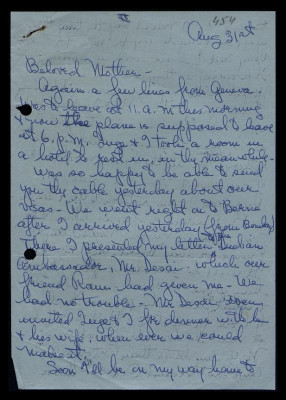 454
Aug 31st
Beloved Mother -
Again a few lines from Geneva.
Was to leave at 11.a.m this morning
& now the plane is supposed to leave
at 6.p.m. Inge & I took a room in
a hotel to rest in, in the meanwhile -
Was so happy to be able to send
you the cable yesterday about our
visas - We went right on to Berne
after I arrived yesterday (from Bombay)
There I presented my letter to the Indian
Ambassador, Mr. Desai - which our
friend Ram had given me - We
had no trouble - Mr Desai even
invited Inge & I for dinner with he
& his wife, when ever we could
make it.
Soon I'll be on my way home to